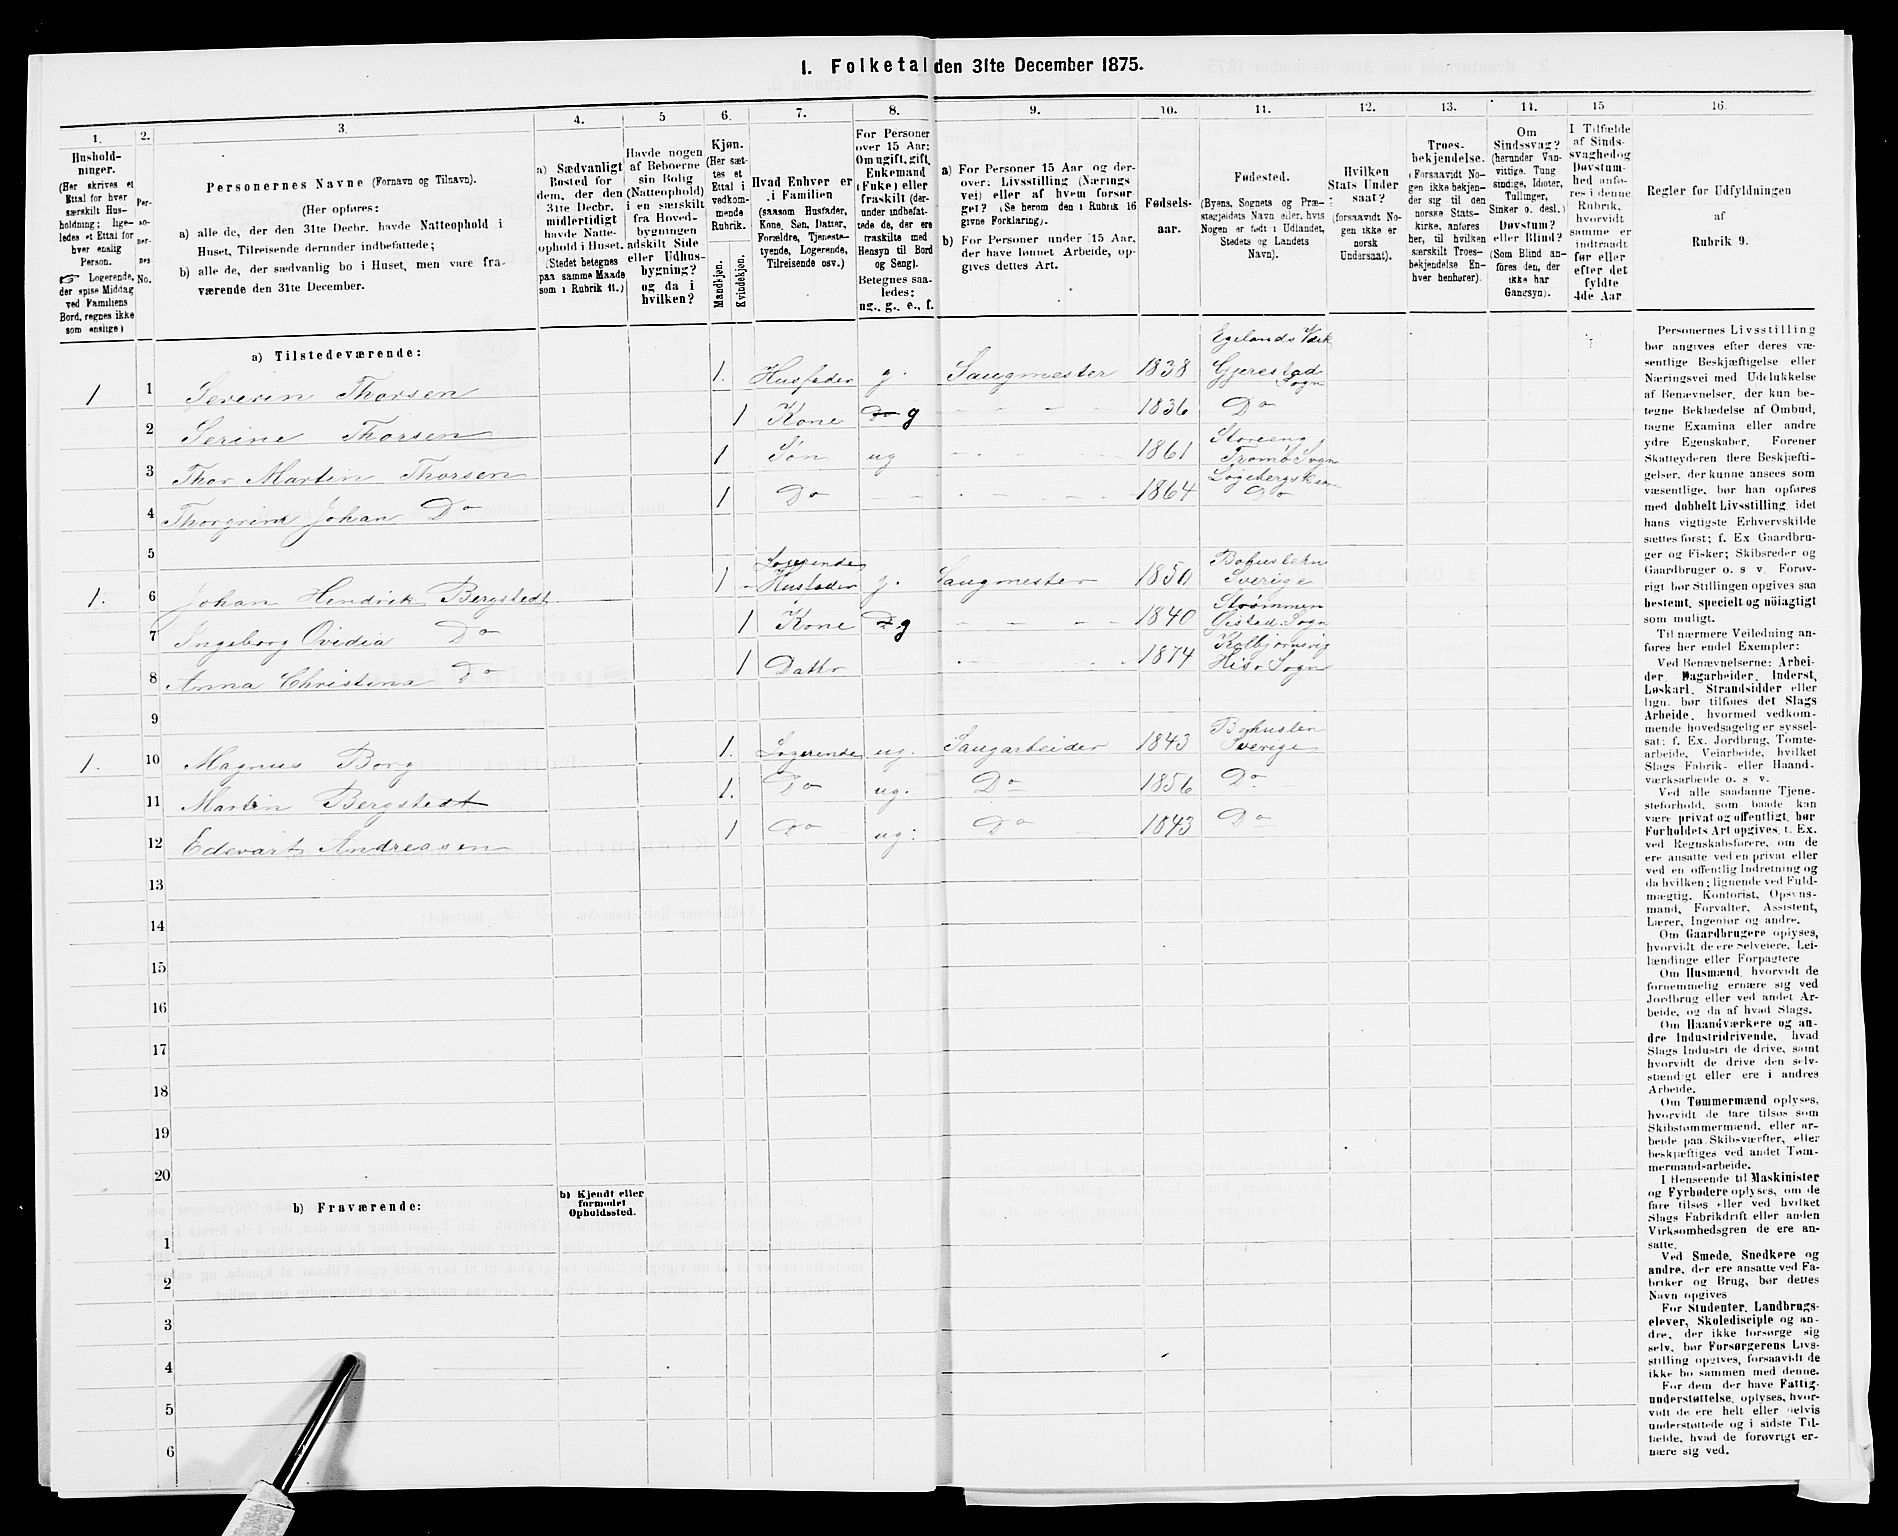 1. Folketal den 31te December 1875.
1. 2. 3. 4. 5 6. 7. 8. 9. 10. 11. 12. 13. 14. 15 16.
Hushold-
ninger.
(Her skrives et
Ettal for hver
særskilt Hus-
holdning; lige-
ledes et Ettal for
hver enslig
Person.
☞ Logerende,
der spise Middag
ved Familiens
Bord, regnes ikke
som enslige)
Per-
so-
ner-
nes
No.
Personernes Navne (Fornavn og Tilnavn).
(Her opføres:
a) alle de, der den 31te Decbr. havde Natteophold i
Huset, Tilreisende derunder indbefattede;
b) alle de, der sædvanlig bo i Huset, men vare fra-
værende den 31te December.
a) Sædvanligt
Bosted for
dem, der den
31te Decbr.
midlertidigt
havde Natte-
ophold i Huset.
(Stedet betegnes
paa samme Maade
som i Rubrik 11.)
Havde nogen
af Beboerne
sin Bolig
(Natteophold)
i en særskilt
fra Hoved-
bygningen
adskilt Side
eller Udhus-
bygning?
og da i
hvilken?
Kjøn.
(Her sæt-
tes et
Ettal i
vedkom-
mende
Rubrik.
Mandkjøn.
Kvindekjøn.
Hvad Enhver er
i Familien
(saasom Husfader,
Kone, Søn, Datter,
Forældre, Tjeneste-
tyende, Logerende,
Tilreisende osv.)
For Personer
over 15 Aar:
Om ugift, gift,
Enkemand
(Enke) eller
fraskilt (der-
under indbefat-
tede de, der ere
fraskilte med
Hensyn til Bord
og Seng).
Betegnes saa-
ledes:
ug., g., e., f.
a) For Personer 15 Aar og der-
over: Livsstilling (Nærings
vei) eller af hvem forsør
get? (Se herom den i Rubrik 16
givne Forklaring).
b) For Personer under 15 Aar,
der have lønnet Arbeide, op-
gives dettes Art.
Fødsels-
aar.
Fødested.
(Byens, Sognets og Præ-
stegjeldets Navn eller, hvis
Nogen er født i Udlandet,
Stedets og Landets
Navn).
Hvilken
Stats Under
saat?
(forsaavidt No-
gen ikke er
norsk
Undersaat).
Troes-
bekjendelse.
(Forsaavidt No-
gen ikke bekjen-
der sig til den
norske Stats-
kirke, anføres
her, til hvilken
særskilt Troes-
bekjendelse En-
hver henhører).
Om
Sindssvag?
(herunder Van-
vittige, Tung
sindige, Idioter,
Tullinger,
Sinker o. desl.)
Døvstum?
eller Blind?
(Som Blind an-
føres den, der
ikke har
Gangsyn).
I Tilfælde
af Sinds-
svaghed og
Døvstum-
hed anfø-
res i denne
Rubrik,
hvorvidt
samme er
indtraadt
før eller
efter det
fyldte
4de Aar
Regler for Udfyldningen
af
Rubrik 9.
a) Tilstedeværende:
1 1 Severin Thorsen 1. Husfader g. Saugmester 1838 Egelands Værk
Gjerestad
Sogn
2 Serine Thorsen 1 Kone Do g 1836 Do
3 Thor Martin Thorsen 1 Søn ug 1861 Storeeng
Tromø Sogn
4 Thorgrim Johan Do 1 Do 1864
Do
5
1. 6 Johan Hendrik Bergstedt 1 Logerende
Husfader g. Saugmester 1850 Bohuslehn
Sverige
7 Ingeborg Ovidia Do 1 Kone D.g 1840 Strømmen
Øisted Sogn
8 Anna Christina Do 1 Dattr 1874 Kolbjørnsvig
Hisø Sogn
9
1. 10 Magnus Borg 1. Logerende ug. Saugarbeider 1843 Bohuslen
Sverige
11 Martin Bergstedt 1. Do ug. Do 1856 Do
12 Edevart Andreasen 1 Do ug. Do 1843 Do
13
14
15
16
17
18
19
20
b) Fraværende:
b) Kjendt eller
formodet
Opholdssted.
1
2
3
4
5
6
Personernes Livsstilling
bør angives efter deres væ-
sentlige Beskjæftigelse eller
Næringsvei med Udelukkelse
af Benævnelser, der kun be-
tegne Beklædelse af Ombud,
tagne Examina eller andre
ydre Egenskaber. Forener
Skatteyderen flere Beskjæfti-
gelser, der kunne ansees som
væsentlige, bør han opføres
med dobbelt Livsstilling, idet
hans vigtigste Erhvervskilde
sættes først; f. Ex Gaardbru-
ger og Fisker; Skibsreder og
Gaardbruger o. s v. Forøv-
rigt bør Stillingen opgives saa
bestemt, specielt og nöiagtigt
som muligt.
Til nærmere Veiledning an-
føres her endel Exempler:
Ved Benævnelserne: Arbei-
der, Dagarbeider, Inderst,
Løskarl, Strandsidder eller
lign. bør tilføres det Slags
Arbeide, hvormed vedkom-
mende hovedsagelig er syssel-
sat; f. Ex. Jordbrug, Tomte-
arbeide, Veiarbeide, hvilket
Slags Fabrik- eller Haand-
værksarbeide o. s v.
Ved alle saadanne Tjene-
steforhold, som baade kan
være privat og offentligt, bør
Forholdets Art opgives, t. Ex.
ved Regnskabsførere, om de
ere ansatte ved en privat eller
ved en offentlig Indretning og
da hvilken; lignende ved Fuld-
mægtig, Kontorist, Opsyns-
mand, Forvalter, Assistent,
Lærer, Ingeniør og andre.
Om Gaardbrugere oplyses,
hvorvidt de ere Selveiere, Lei-
lændinge eller Forpagtere
Om Husmænd, hvorvidt de
fornemmelig ernære sig ved
Jordbrug eller ved andet Ar-
beide, og da af hvad Slags.
Om Haandværkere og an-
dre Industridrivende, hvad
Slags Industri de drive, samt
hvorvidt de drive den selv-
stændigt eller ere i andres
Arbeide.
Om Tømmermænd oplyses,
hvorvidt de fare tilsøs som
Skibstømmermænd, eller ar-
beide paa Skibsværfter, eller
beskjæftiges ved andet Tøm-
mermandsarbeide.
I Henseende til Maskinister
og Fyrbødere oplyses, om de
fare tilsøs eller ved hvilket
Slags Fabrikdrift eller anden
Virksomhedsgren de ere an-
satte.
Ved Smede, Snedkere og
andre, der ere ansatte ved Fa-
briker og Brug, bør dettes
Navn opgives
For Studenter, Landbrugs-
elever, Skoledisciple og an-
dre, der ikke forsørge sig
selv, bør Forsørgerens Livs-
stilling opgives, forsaavidt de
ikke bo sammen med denne.
For dem, der have Fattig-
understøttelse, oplyses, hvor-
vidt de ere helt eller delvis
understøttede og i sidste Til-
fælde, hvad de forøvrigt er-
nære sig ved.